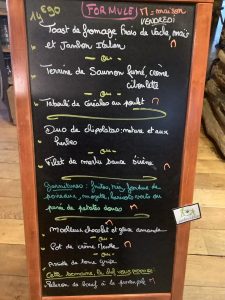 14€90 FORMULE Π = maison
VENDREDI
Toast de fromage frais de vache, maïs
et Jambon Italien
ou
Terrine de Saumon fumé, crème
ciboulette
ou
Taboulé de céréales au poulet Π
Duo de chipolatas: nature et aux
herbes
ou
Filet de merlu sauce sirène Π
Garnitures: frites, riz, fondue de
poireaux, mogette, haricots verts ou
purée de patates douces Π
Moelleux chocolat et glace amande
ou
Pot de crème Menthe Π
ou
grise
Cette semaine, le chef vous propose:
de bœuf à la provençale Π